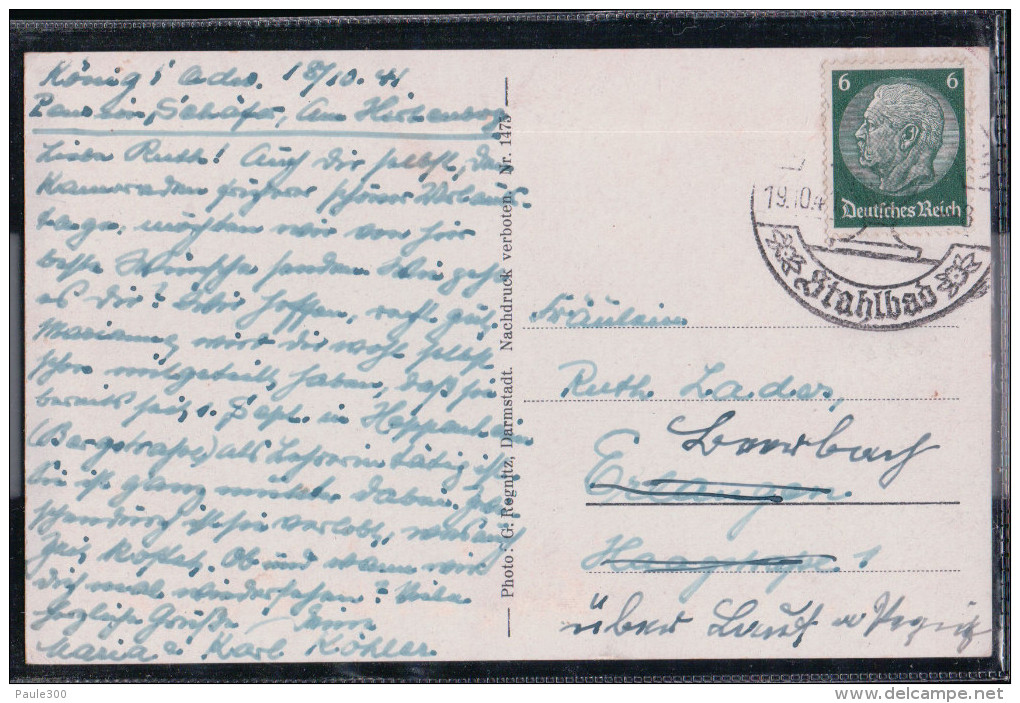 König i. Odw. 18/10. 41
Pension Schäfer, Am
Liebe Ruth! Auch Dir selbst, den
Kameraden schöner Urlaubs-
tage, möchten wir von hier
beste Wünsche senden. Wie geht
es Dir? Wir hoffen, recht gut.
Marianne wird Dir wohl selbst
schon mitgeteilt haben, daß sie
bereits seit 1. Sept. in Heppenheim
(Bergstraße) als Lehrerin tätig ist.
Sie ist ganz munter dabei.
ist sie verlobt,
Ob und wann wir
Dich mal wiedersehen? Viele
herzliche Grüße Deine
Maria u. Karl Köhler.
Photo: G. Rognitz, Darmstadt. Nachdruck verboten. Nr. 1475
6 6
Deutsches Reich
19.10.4
Stahlbad
Fräulein
Ruth Lades,
Beerbach
Erlangen
1
über Lauf a Pegnitz
Paule300
www.delcampe.net